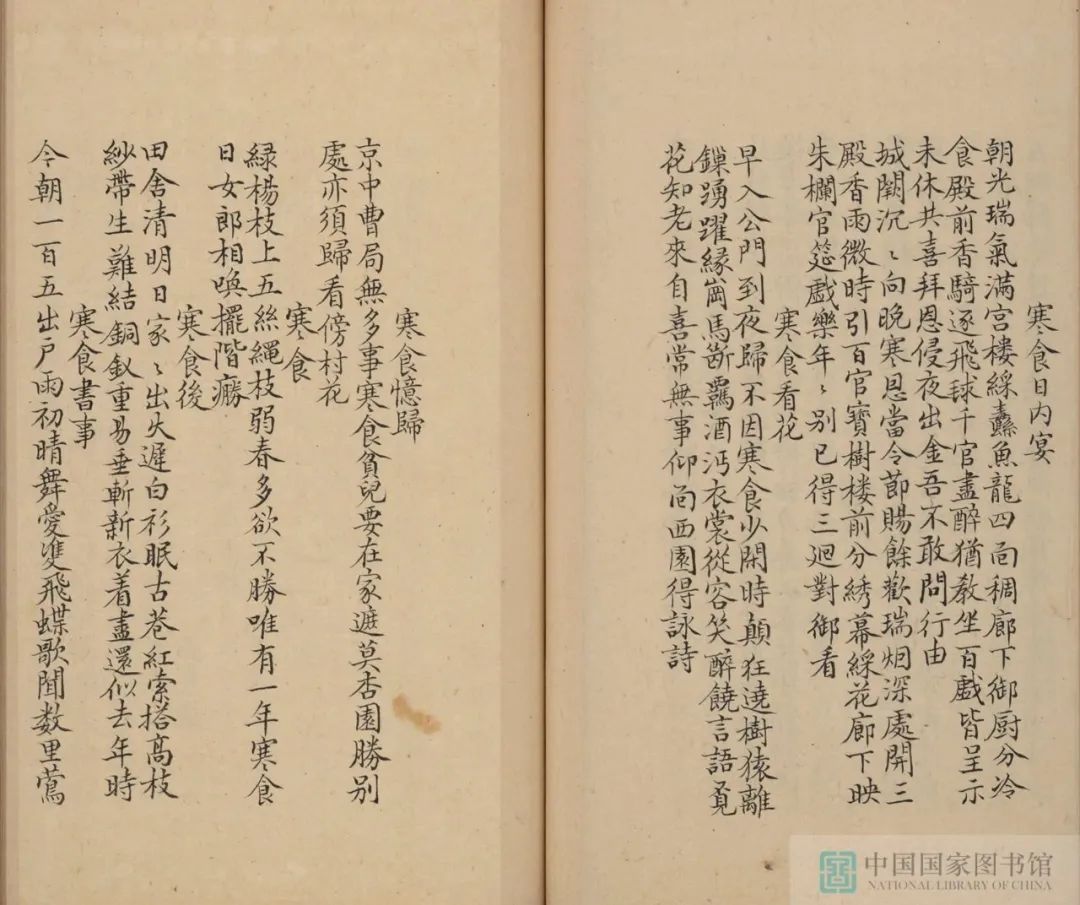 寒食日内宴
朝光瑞氣滿宫楼綵纛魚龍四面稠廊下御厨分冷
食殿前香騎逐飛毬千官盡醉猶教坐百戲皆呈示
未休共喜拜恩侵夜出金吾不敢問行由
城闕沉〻向晚寒恩當令節賜餘歡瑞烟深處開三
殿香雨微時引百官寶樹楼前分綉幕綵花廊下映
朱欄宫筵戲樂年〻别已得三迴對御看
寒食看花
早入公門到夜歸不因寒食少閑時顛狂遶樹猿離
鏁踴躍緣崗馬断羈酒污衣裳從容笑醉饒言語覔
花知老來自喜常無事仰面西園得詠詩
寒食憶歸
京中曹局無多事寒食貧兒要在家遮莫杏園勝别
處亦須歸看傍村花
寒食
緑楊枝上五絲繩枝弱春多欲不勝唯有一年寒食
日女郎相喚擺階㿇
寒食後
田舍清明日家〻出火遲白衫眠古巷紅索搭高枝
紗帶生難結銅釵重易垂斬新衣着盡還似去年時
寒食書事
今朝一百五出户雨初晴舞愛雙飛蝶歌聞数里鶯
中国国家图书馆
NATIONAL LIBRARY OF CHINA